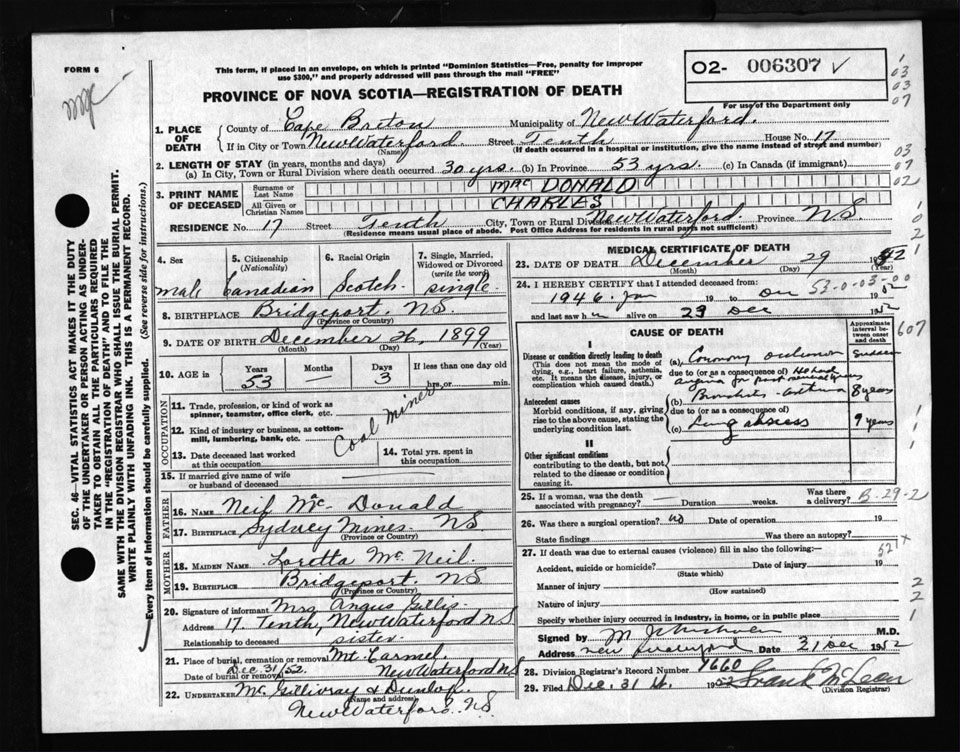 FORM 6
This form, if placed in an envelope, on which is printed "Dominion Statistics—Free, penalty for improper
use $300," and properly addressed will pass through the mail "FREE"
02- 006307 ✓
For use of the Department only
PROVINCE OF NOVA SCOTIA—REGISTRATION OF DEATH
1. PLACE OF DEATH
County of Cape Breton Municipality of New Waterford.
If in City or Town New Waterford (Name) Street Tenth House No. 17
(If death occurred in a hospital or institution, give the name instead of street and number)
2. LENGTH OF STAY (in years, months and days)
(a) In City, Town or Rural Division where death occurred 30 yrs. (b) in Province 53 yrs. (c) In Canada (if immigrant)
3. PRINT NAME OF DECEASED
Surname or Last Name MAC DONALD
All Given or Christian Names CHARLES
RESIDENCE No. 17 Street Tenth City, Town or Rural Division New Waterford. Province NS
(Residence means usual place of abode. Post Office Address for residents in rural parts not sufficient)
4. Sex male
5. Citizenship (Nationality) Canadian
6. Racial Origin Scotch
7. Single, Married, Widowed or Divorced (write the word) single
8. BIRTHPLACE Bridgeport. NS
(Province or Country)
9. DATE OF BIRTH December 26, 1899
(Month) (Day) (Year)
10. AGE in Years 53 Months — Days 3 If less than one day old hrs. or min.
OCCUPATION
11. Trade, profession, or kind of work as spinner, teamster, office clerk, etc.
12. Kind of industry or business, as cotton-mill, lumbering, bank, etc.
Coal Miner
13. Date deceased last worked at this occupation
14. Total yrs. spent in this occupation
15. If married give name of wife or husband of deceased
FATHER
16. NAME Neil Mc Donald
17. BIRTHPLACE Sydney Mines. NS
(Province or Country)
MOTHER
18. MAIDEN NAME Loretta Mc Neil
19. BIRTHPLACE Bridgeport. NS
(Province or Country)
20. Signature of informant Mrs Angus Gillis
Address 17 Tenth, New Waterford NS
Relationship to deceased sister
21. Place of burial, cremation or removal Mt. Carmel
Date of burial or removal Dec 31/52. New Waterford NS
22. UNDERTAKER Mc Gillivray & Dunlop.
(Name and address)
New Waterford. NS
MEDICAL CERTIFICATE OF DEATH
23. DATE OF DEATH December 29 1952
(Month) (Day) (Year)
24. I HEREBY CERTIFY that I attended deceased from:
1946 Jan 19 to Dec 19 52
and last saw him alive on 29 Dec 1952
53-0-03-00
CAUSE OF DEATH
Approximate interval between onset and death
I
Disease or condition directly leading to death
(This does not mean the mode of dying, e.g., heart failure, asthenia, etc. It means the disease, injury, or complication which caused death.)
(a) Coronary occlusion Sudden
due to (or as a consequence of) He had
angina for past several years
Antecedent causes
Morbid conditions, if any, giving rise to the above cause, stating the underlying condition last.
(b) Bronchitis - asthma 8 years
due to (or as a consequence of)
(c) Lung abscess 9 years
II
Other significant conditions
contributing to the death, but not related to the disease or condition causing it.
25. If a woman, was the death associated with pregnancy? — Duration weeks. Was there a delivery?
B-29-2
26. Was there a surgical operation? no Date of operation 19
State findings Was there an autopsy?
27. If death was due to external causes (violence) fill in also the following:—
Accident, suicide or homicide? Date of injury 19
(State which)
Manner of injury
(How sustained)
Nature of injury
Specify whether injury occurred in industry, in home, or in public place
Signed by M.D.
Address New Waterford Date 31 Dec 1952
28. Division Registrar's Record Number 1660
29. Filed Dec. 31st. 1952 Frank McLean
(Division Registrar)
SEC. 46—VITAL STATISTICS ACT MAKES IT THE DUTY
OF THE UNDERTAKER OR PERSON ACTING AS UNDER-
TAKER TO OBTAIN ALL THE PARTICULARS REQUIRED
IN THE "REGISTRATION OF DEATH" AND TO FILE THE
SAME WITH THE DIVISION REGISTRAR WHO SHALL ISSUE THE BURIAL PERMIT.
WRITE PLAINLY WITH UNFADING INK. THIS IS A PERMANENT RECORD.
Every item of information should be carefully supplied. (See reverse side for instructions.)
03
03
07
03
07
02
607